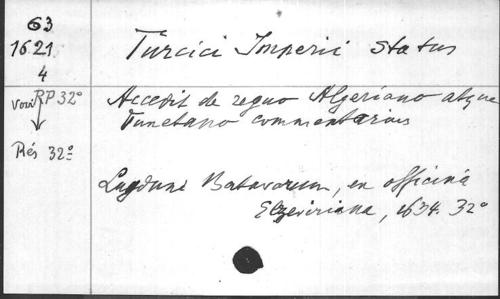 63
1621
4
Turcici Imperii status
voir RP 32°
Accedit de regno Algeriano atque
Tunetano commentarius
Rés 32°
Lugduni Batavorum, ex officinâ
Elzeviriana, 1634. 32°